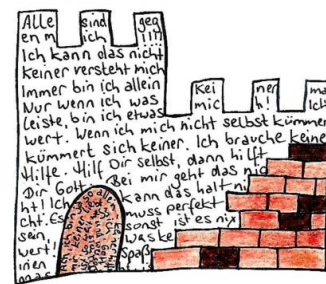 Alle sind geg
en m ich !!!
Ich kann das nicht
Keiner versteht mich
Immer bin ich allein
Nur wenn ich was Kei ner ma
leiste, bin ich etwas mic h! Ich
wert. Wenn ich mich nicht selbst kümmer
kümmert sich keiner. Ich brauche keine
Hilfe. Hilf Dir selbst, dann hilft
Dir Gott. Bei mir geht das nic
ht! Ich kann das halt ni
cht. Es muss perfekt
sein, sonst ist es nix
wert! was ke
inen Spaß
mac